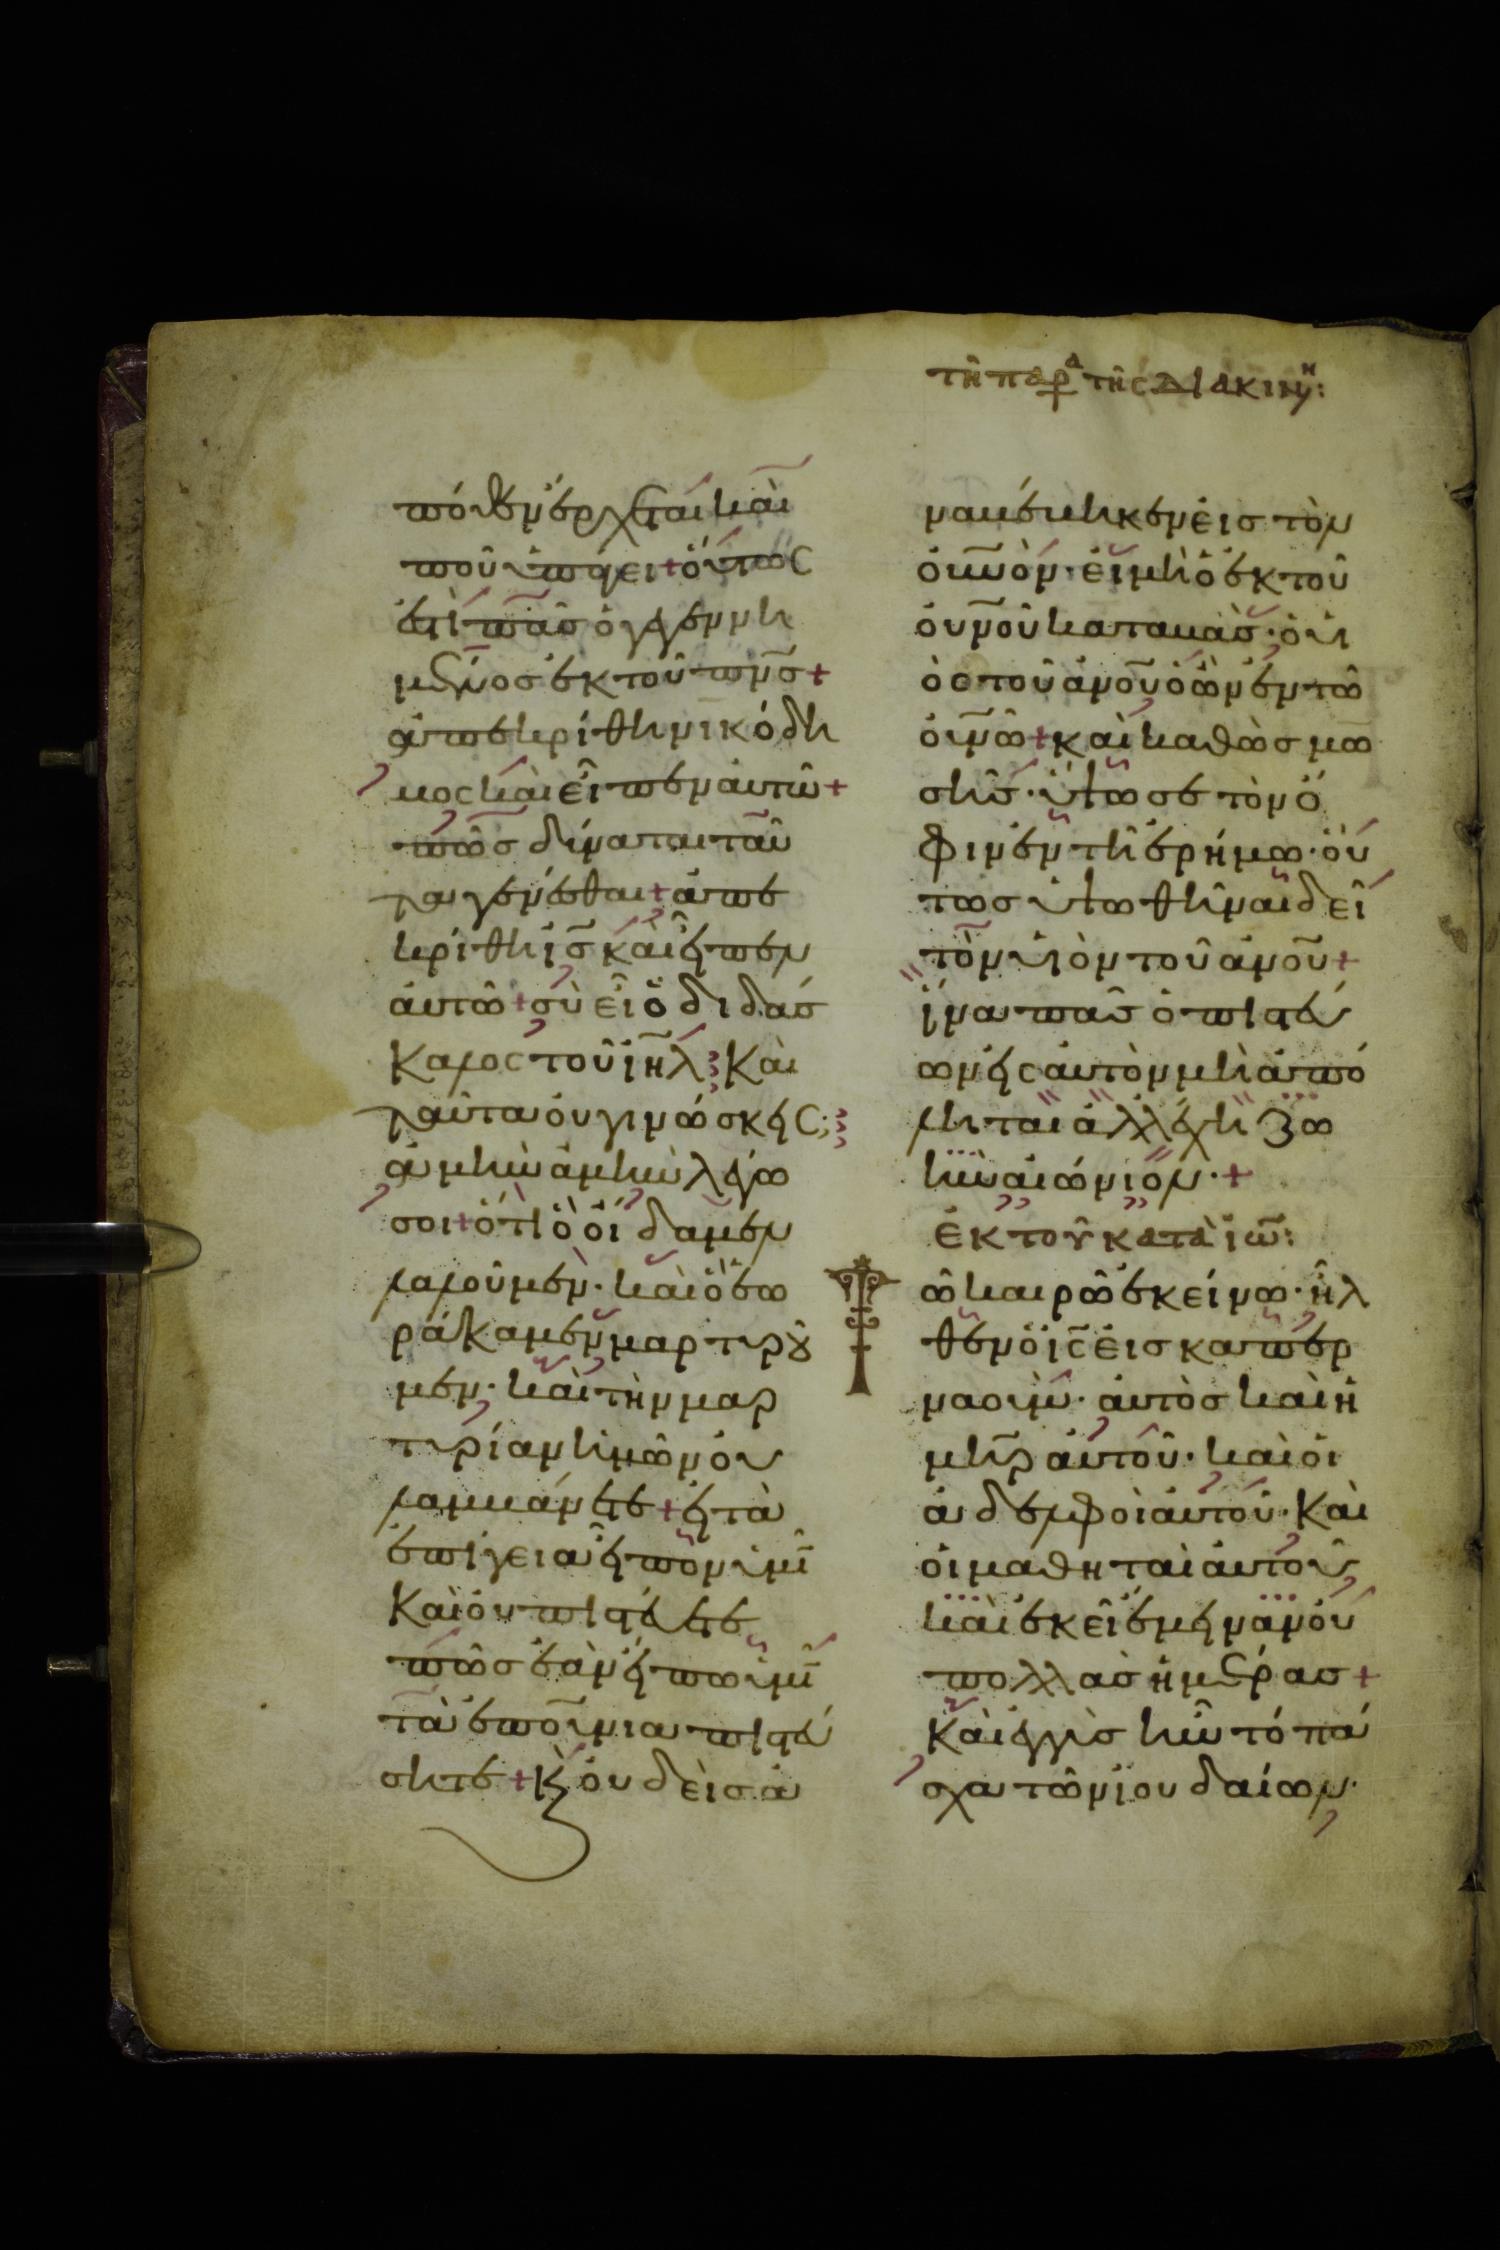 τῆ παρα τῆς διακινη:
πόθεν ἔρχεται καὶ
ποῦ ὑπάγει + οὕτως
ἐστὶ πᾶσ ὁ γεγεννη
μένος ἐκ τοῦ πνσ +
ἀπεκρίθη νικόδη
μος καὶ εἶπεν αὐτῶ +
πῶσ δύναται ταῦ
τα γενέσθαι + ἀπε
κρίθη ἰσ καὶ εἶπεν
αὐτῶ + σὺ εἶ ὁ διδάσ
καλος τοῦ ἰηλ καὶ
ταῦτα οὐ γινώσκεις;
ἀμὴν ἀμὴν λέγω
σοι + ὅτι ὃ οἴδαμεν
λαλοῦμεν· καὶ ὃ ἑω
ράκαμεν μαρτυροῦ
μεν· καὶ τὴν μαρ
τυρίαν ἡμῶν οὐ
λαμβάνετε + εἰ τὰ
ἐπίγεια εἶπον ὑμῖ
καὶ οὐ πιστεύετε
πῶσ ἐὰν εἴπω ὑμῖ
τὰ ἐποῦνια πιστεύ
σητε + κ οὐδεὶσ ἀ
ναβέβηκεν εἰσ τὸν
οὐνὸν· εἰ μὴ ὁ ἐκ τοῦ
οὐνοῦ καταβὰσ· ὁ υἱ
ὸσ τοῦ ἀνοῦ ὁ ὢν ἐν τῶ
οὐνῶ + καὶ καθὼσ μω
σῆσ· ὕψωσε τὸν ὄ
φιν ἐν τῆ ἐρήμω· οὕ
τωσ ὑψωθῆναι δεῖ
τὸν υἱὸν τοῦ ἀνοῦ +
ἵνα πᾶσ ὁ πιστεύ
ων εἰς αὐτὸν μὴ ἀπό
ληται ἀλλ ἔχη ζω
ὴν αἰώνιον· +
ἐκ τοῦ κατὰ ἰω:
Τῶ καιρῶ ἐκείνω· ἦλ
θεν ὁ ἰς εἰσ καπερ
ναουμ· αὐτὸσ καὶ ἡ
μηρ αὐτοῦ· καὶ οἱ
ἀδελφοὶ αὐτοῦ· καὶ
οἱ μαθηταὶ αὐτοῦ
καὶ ἐκεῖ ἔμειναν οὐ
πολλὰσ ἡμέρασ +
καὶ ἐγγὺσ ἦν τὸ πά
σχα τῶν ἰουδαίων·